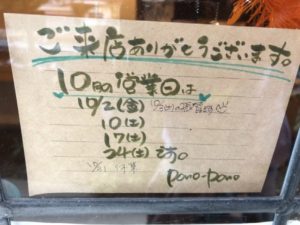 ご来店ありがとうございます。
10月の営業日は
10/2(金)
10(土)
17(土)
24(土)です。
pono-pono